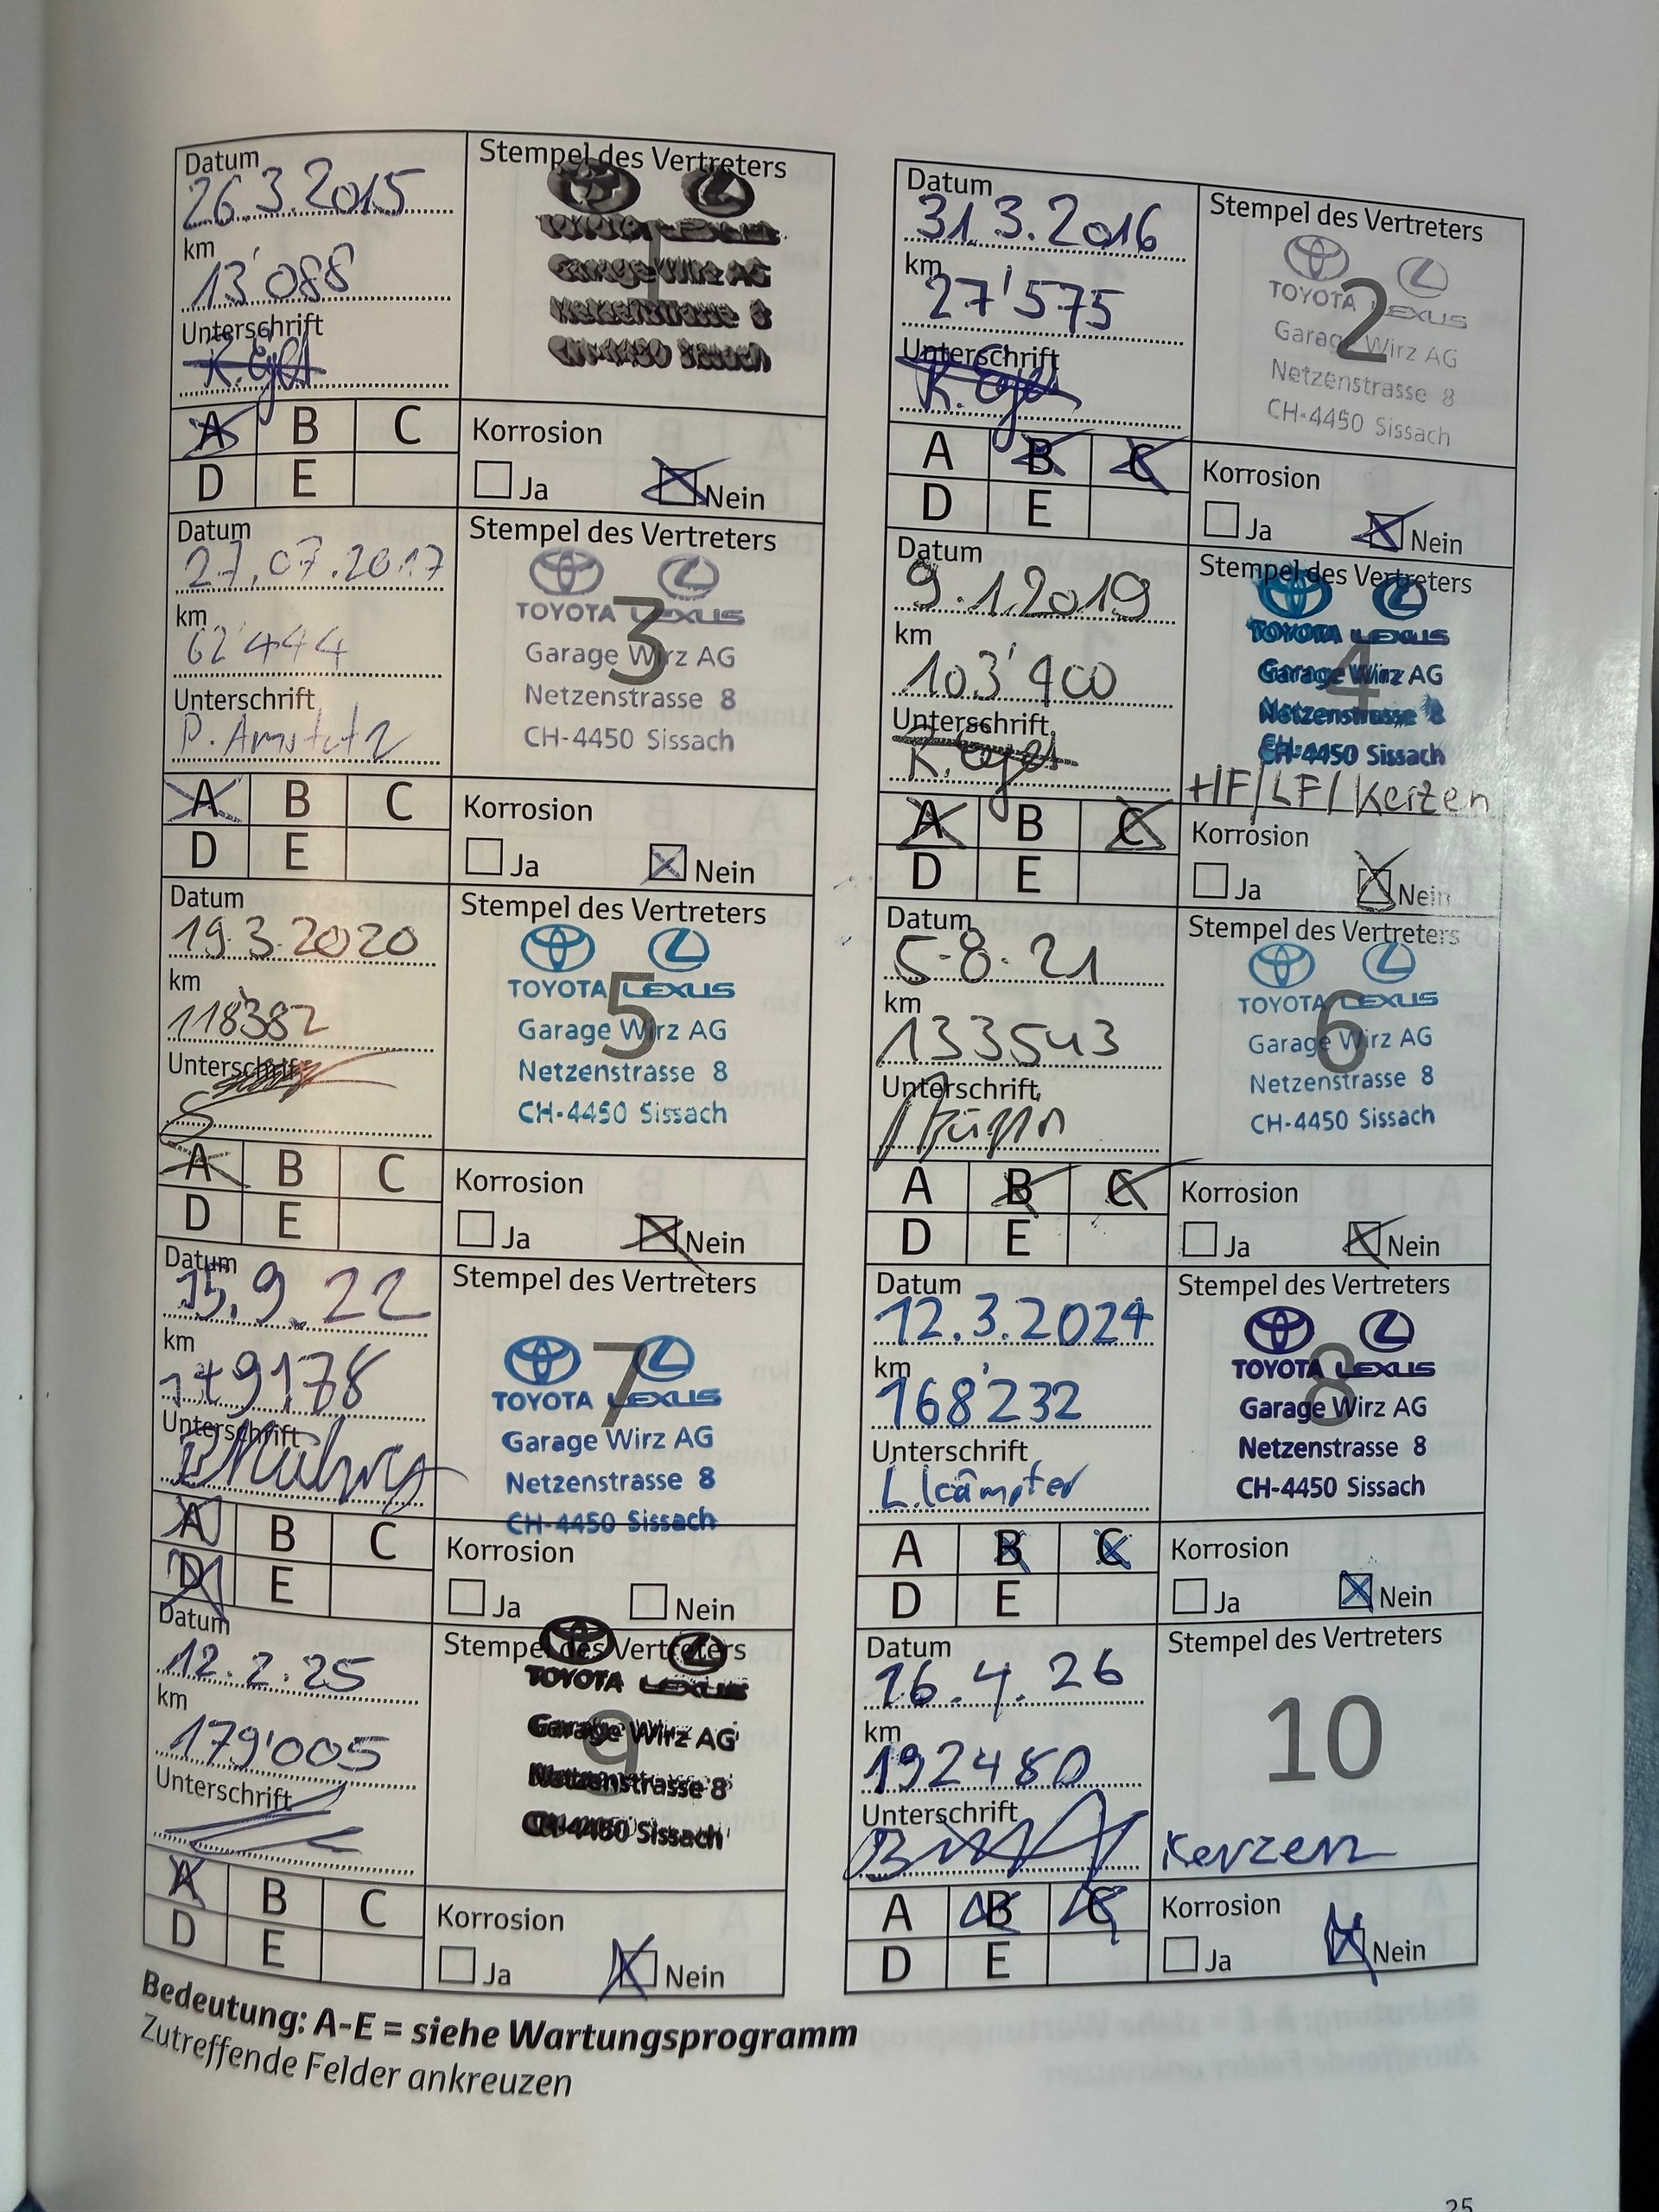 Datum
26.3.2015
km
13'088
Unterschrift
Stempel des Vertreters
TOYOTA LEXUS
1
Garage Wirz AG
Netzenstrasse 8
CH-4450 Sissach
A B C
D E
Korrosion
Ja Nein
Datum
31.3.2016
km
27'575
Unterschrift
Stempel des Vertreters
2
TOYOTA LEXUS
Garage Wirz AG
Netzenstrasse 8
CH-4450 Sissach
A B C
D E
Korrosion
Ja Nein
Datum
27.07.2017
km
62'444
Unterschrift
Stempel des Vertreters
3
TOYOTA LEXUS
Garage Wirz AG
Netzenstrasse 8
CH-4450 Sissach
A B C
D E
Korrosion
Ja Nein
Datum
9.1.2019
km
103'900
Unterschrift
Stempel des Vertreters
4
TOYOTA LEXUS
Garage Wirz AG
Netzenstrasse 8
CH-4450 Sissach
HF/LF/Kerzen
A B C
D E
Korrosion
Ja Nein
Datum
19.3.2020
km
118'382
Unterschrift
Stempel des Vertreters
5
TOYOTA LEXUS
Garage Wirz AG
Netzenstrasse 8
CH-4450 Sissach
A B C
D E
Korrosion
Ja Nein
Datum
5.8.21
km
133543
Unterschrift
Stempel des Vertreters
6
TOYOTA LEXUS
Garage Wirz AG
Netzenstrasse 8
CH-4450 Sissach
A B C
D E
Korrosion
Ja Nein
Datum
15.9.22
km
149178
Unterschrift
Stempel des Vertreters
7
TOYOTA LEXUS
Garage Wirz AG
Netzenstrasse 8
CH-4450 Sissach
A B C
D E
Korrosion
Ja Nein
Datum
12.3.2024
km
168'232
Unterschrift
L. Kämpfer
Stempel des Vertreters
8
TOYOTA LEXUS
Garage Wirz AG
Netzenstrasse 8
CH-4450 Sissach
A B C
D E
Korrosion
Ja Nein
Datum
12.2.25
km
179'005
Unterschrift
Stempel des Vertreters
9
TOYOTA LEXUS
Garage Wirz AG
Netzenstrasse 8
CH-4450 Sissach
A B C
D E
Korrosion
Ja Nein
Datum
16.4.26
km
192480
Unterschrift
Stempel des Vertreters
10
Kerzen
A B C
D E
Korrosion
Ja Nein
Bedeutung: A-E = siehe Wartungsprogramm
Zutreffende Felder ankreuzen
25